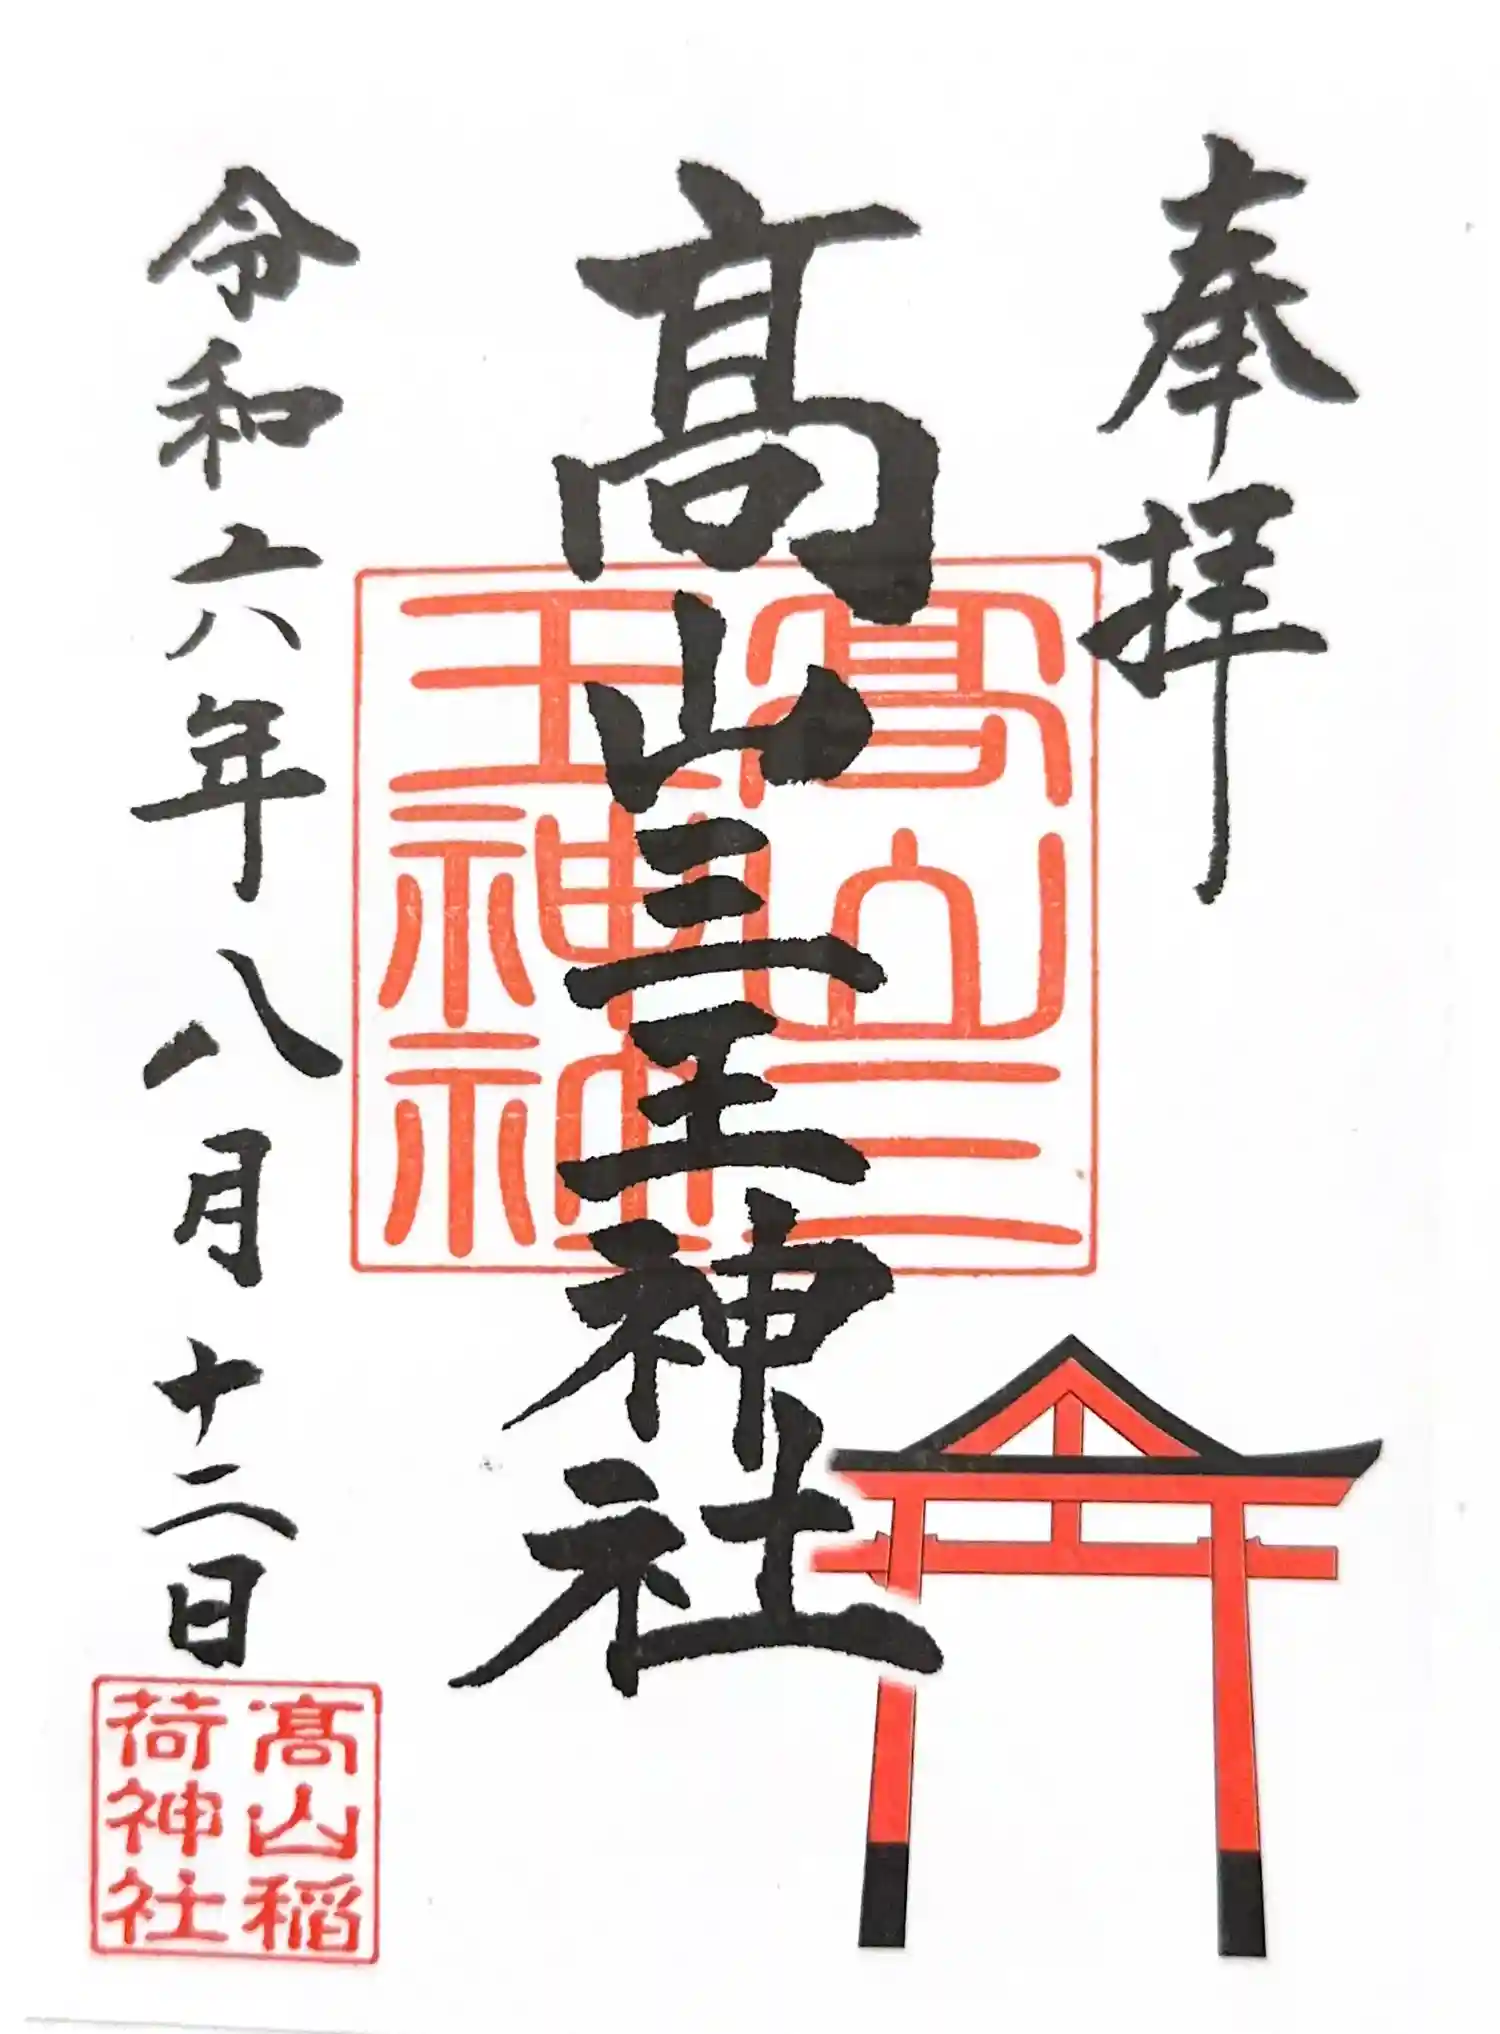 奉拝
髙山三王神社
令和六年八月十二日
髙山三
王神社
髙山稲
荷神社